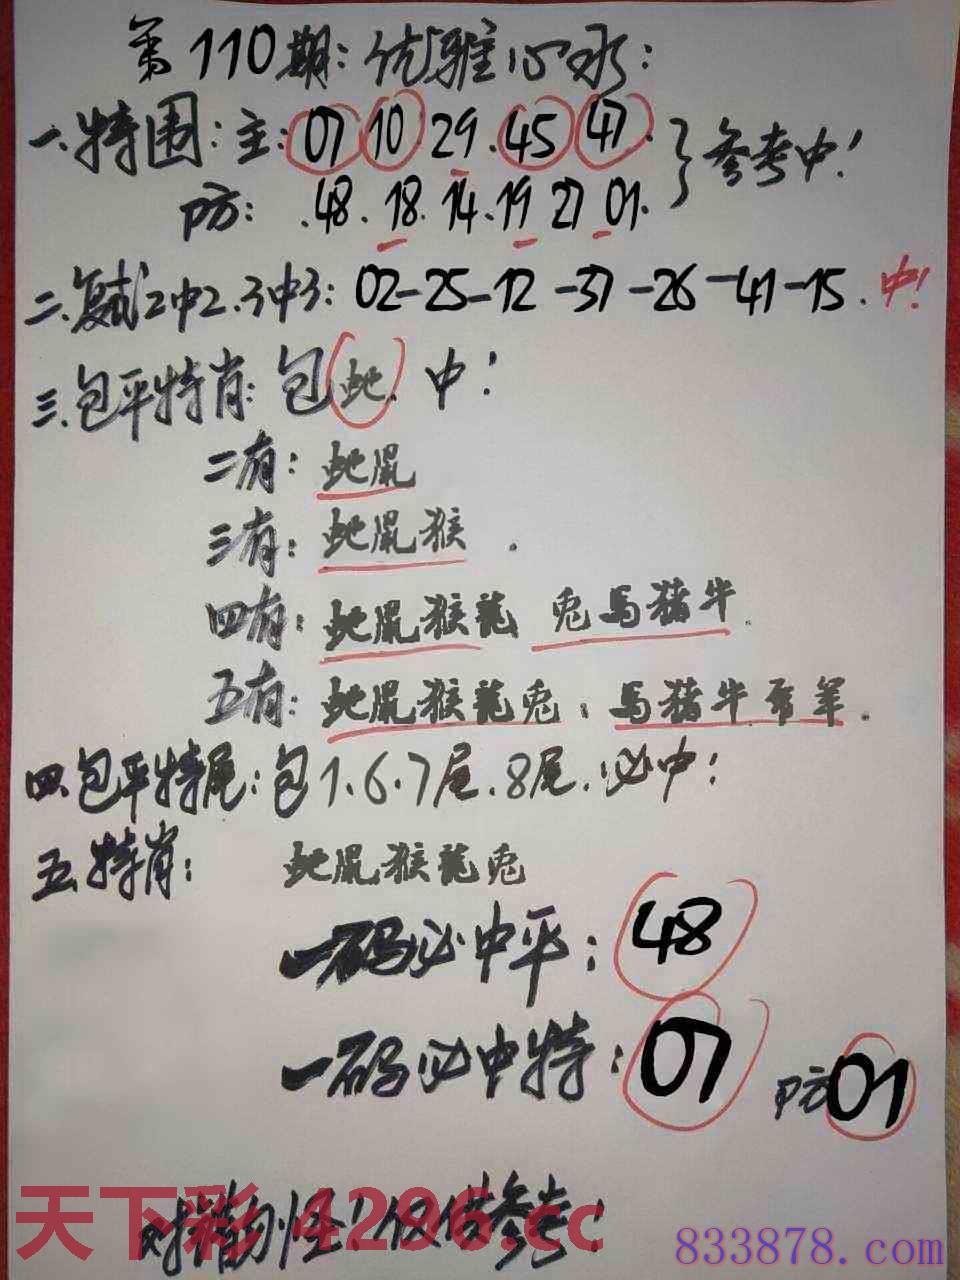 第110期:优雅心水:
一.特围:主:07 10 29.45 47.}参考中!
防:.48.18.14.19 27 01.
二.复式2中2.3中3:02-25-12-37-26-41-15.中!
三.包平特肖:包蛇.中!
二有:蛇鼠
三有:蛇鼠猴.
四有:蛇鼠猴龍 兔马猪牛.
五有:蛇鼠猴龍兔:马猪牛 羊.
四.包平特尾:包1.6.7尾.8尾.必中!
五.特肖: 蛇鼠猴龍兔
一码必中平:48
一码必中特:07 防01
错勿怪!仅供参考!
天下彩 4296.cc
833878.com